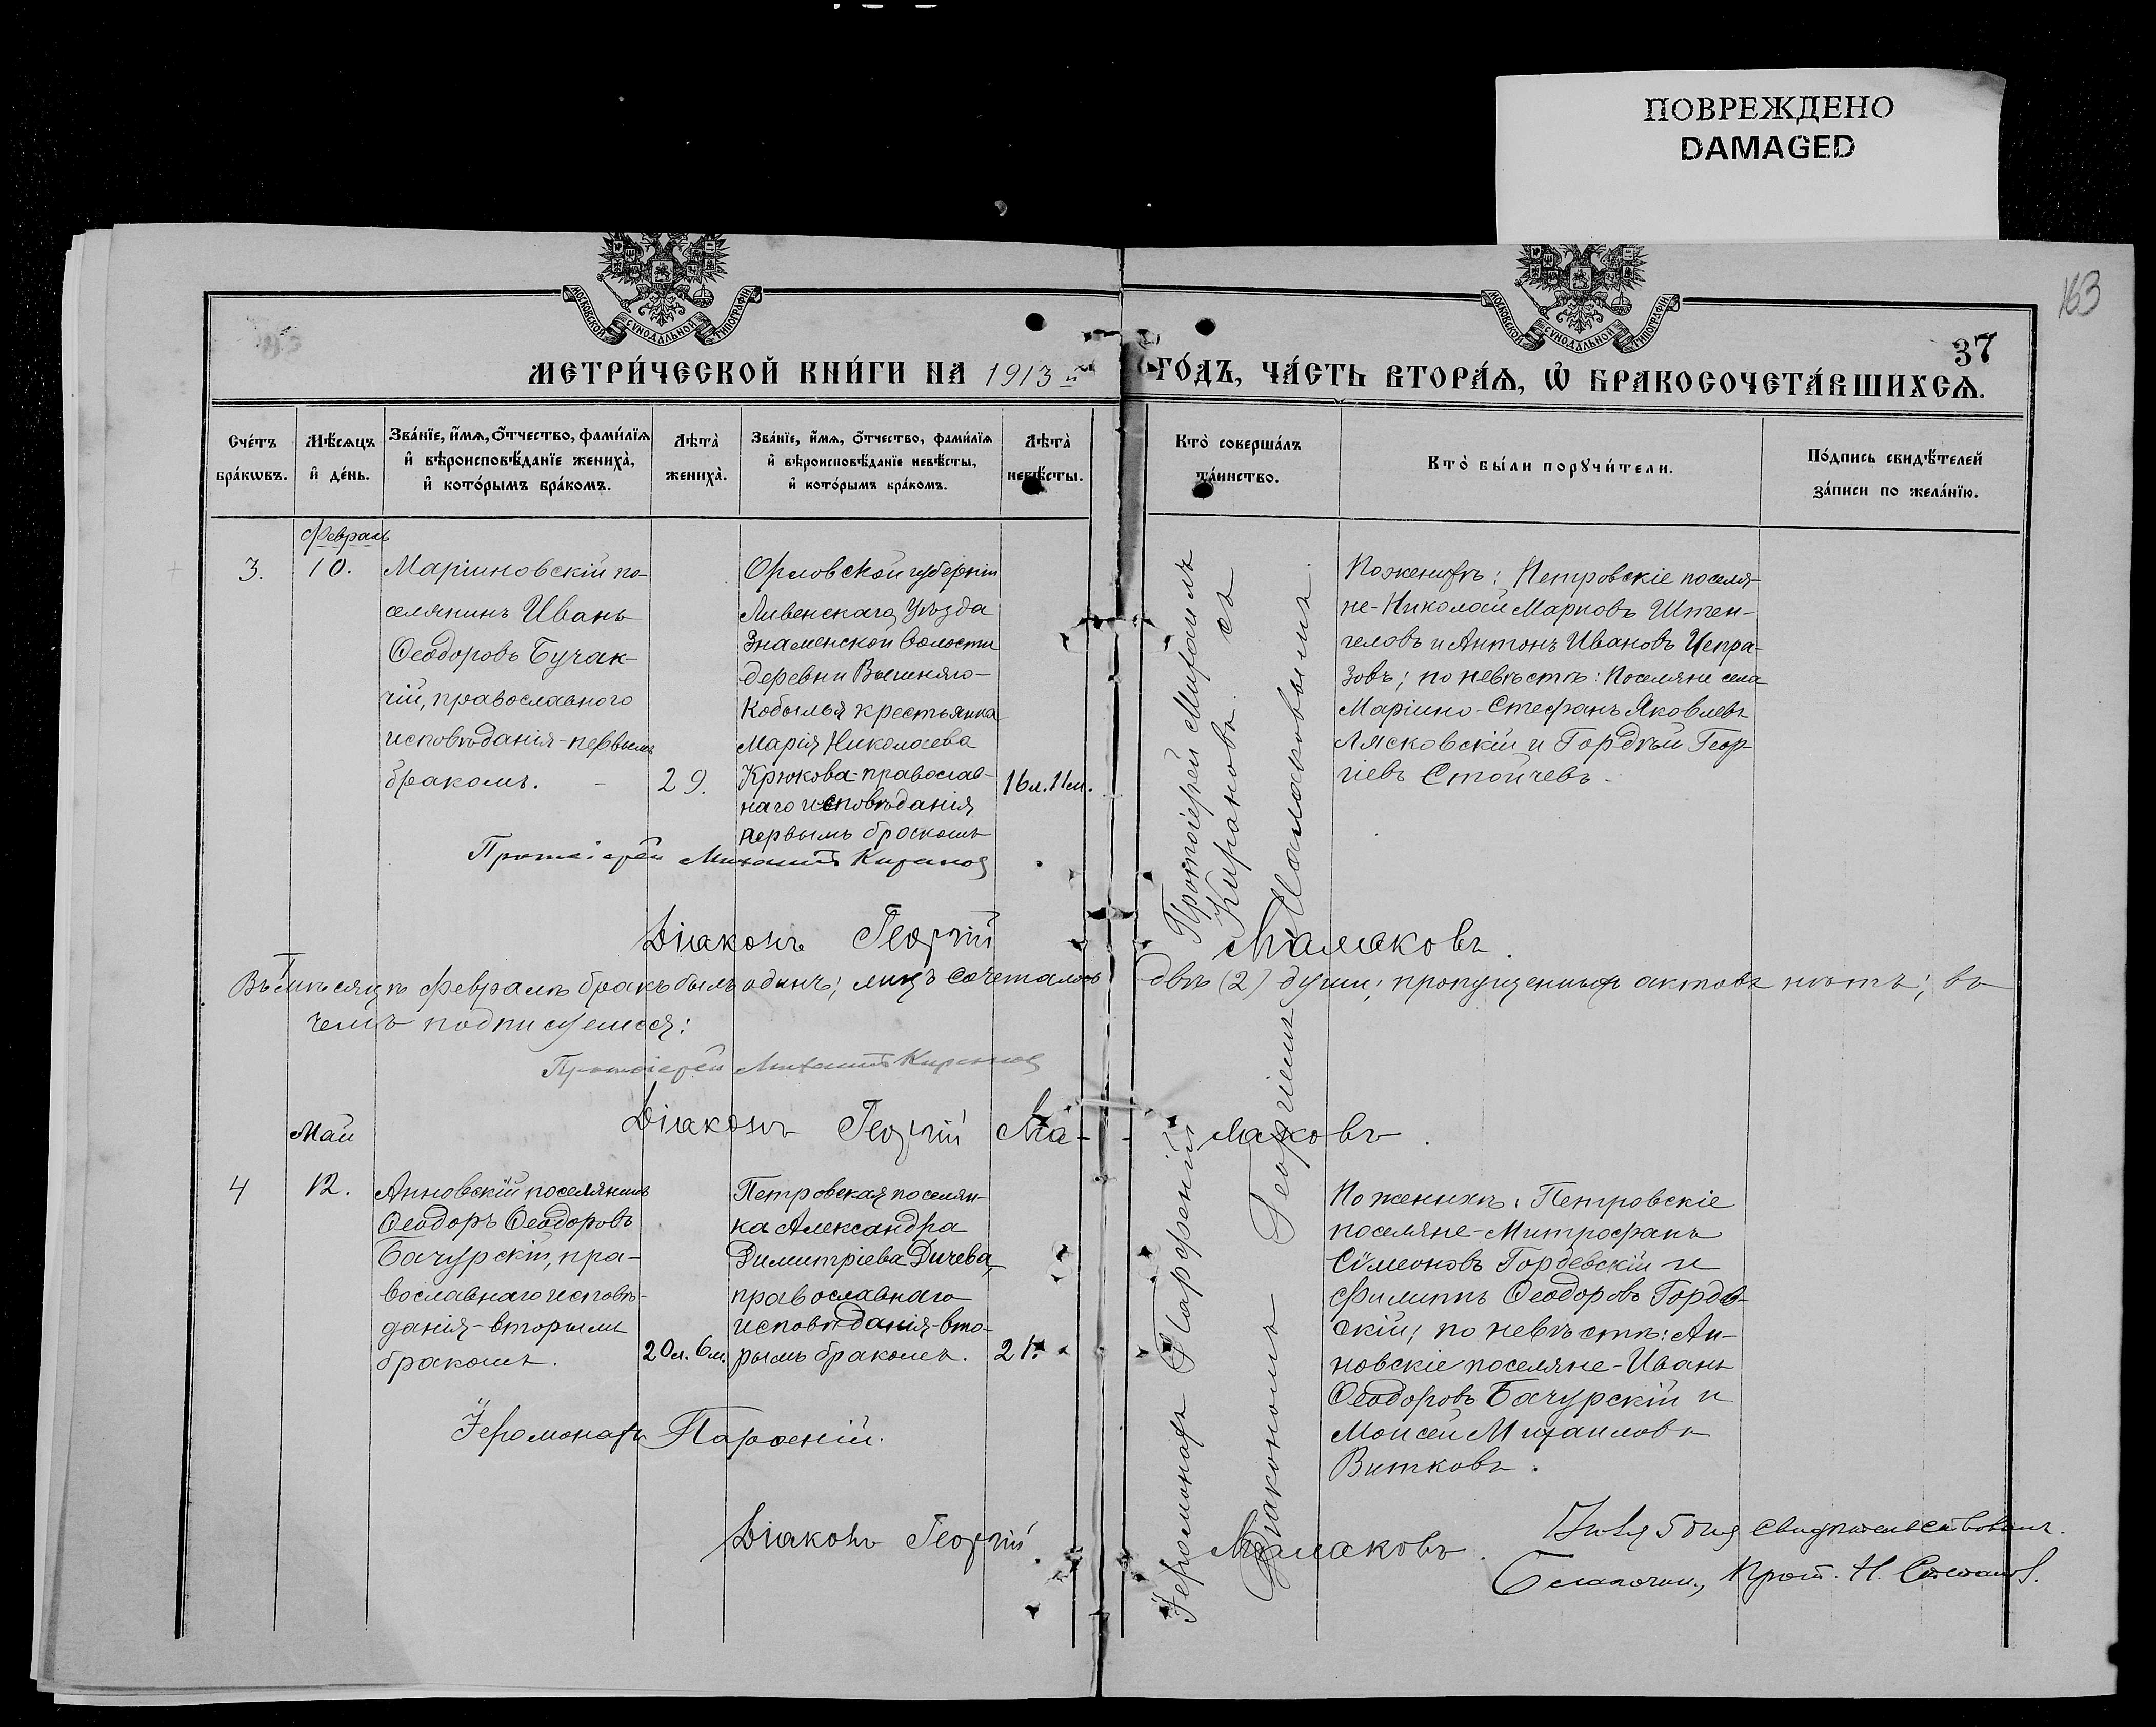 ПОВРЕЖДЕНО
DAMAGED
163
37
МОСКОВСКОЙ СѴНОДАЛЬНОЙ ТИПОГРАФІИ
МОСКОВСКОЙ СѴНОДАЛЬНОЙ ТИПОГРАФІИ
МЕТРИ́ЧЕСКОЙ КНИ́ГИ НА 1913 й ГО́ДЪ, ЧА́СТЬ ВТОРА́Ѧ, Ѡ БРАКОСОЧЕТА́ВШИХСѦ.
Сче́тъ бра́кѡвъ.
Мѣ́сѧцъ и де́нь.
Зва́нїе, и́мѧ, о́тчество, фами́лїѧ и вѣроисповѣ́данїе жениха̀, и кото́рымъ бра́комъ.
Лѣта̀ жениха̀.
Зва́нїе, и́мѧ, о́тчество, фами́лїѧ и вѣроисповѣ́данїе невѣ́сты, и кото́рымъ бра́комъ.
Лѣта̀ невѣ́сты.
Кто̀ соверша́лъ та́инство.
Кто̀ бы́ли порꙋчи́тели.
По́дпись свидѣ́телей за́писи по жела́нїю.
Февраль
3.
10.
Маріиновскій по-
селянинъ Иванъ
Ѳеодоровъ Бучак-
чій, православного
исповѣданія - первымъ
бракомъ. -
29.
Орловской губерніи
Ливенскаго уѣзда
Знаменской волости
деревни Вышняго-
Кобылья крестьянка
Марія Николаева
Крюкова - православ-
наго исповѣданія
первымъ бракомъ
16 л. 11 м.
Протоіерей Михаилъ
Кирановъ. съ
Діакономъ Георгіемъ Мамаковымъ.
По женихѣ: Петровскіе поселя-
не - Николай Марковъ Штен-
геловъ и Антонъ Ивановъ Чепра-
зовъ; по невѣстѣ: Поселяне села
Маріино - Стефанъ Яковлевъ
Лясковскій и Гордѣй Геор-
гіевъ Стойчевъ.
Протоіерей Михаилъ Кирановъ
Діаконъ Георгій Мамаковъ.
Въ мѣсяцѣ февралѣ бракъ былъ одинъ; лицъ сочеталось двѣ (2) души; пропущенныхъ актовъ нѣтъ; въ
чемъ подписуемся:
Протоіерей Михаилъ Кирановъ
Діаконъ Георгій Ма-маковъ.
Май
4
12.
Анновскій поселянинъ
Ѳеодоръ Ѳеодоровъ
Бачурскій, пра-
вославнаго исповѣ-
данія - вторымъ
бракомъ.
20 л. 6 м.
Петровская поселян-
ка Александра
Димитріева Дичева,
православнаго
исповѣданія - вто-
рымъ бракомъ.
21.
Іеромонахъ Парфеній
По женихѣ: Петровскіе
поселяне - Митрофанъ
Сѵмеоновъ Гордевскій и
Филиппъ Ѳеодоровъ Гордев-
скій; по невѣстѣ: Ан-
новскіе поселяне - Иванъ
Ѳеодоровъ Бачурскій и
Моисей Михаиловъ
Витковъ.
Іеромонахъ Парѳеній.
Діаконъ Георгій Мамаковъ.
5 дня свидѣтельствовалъ.
Благочин., Прот. Н.